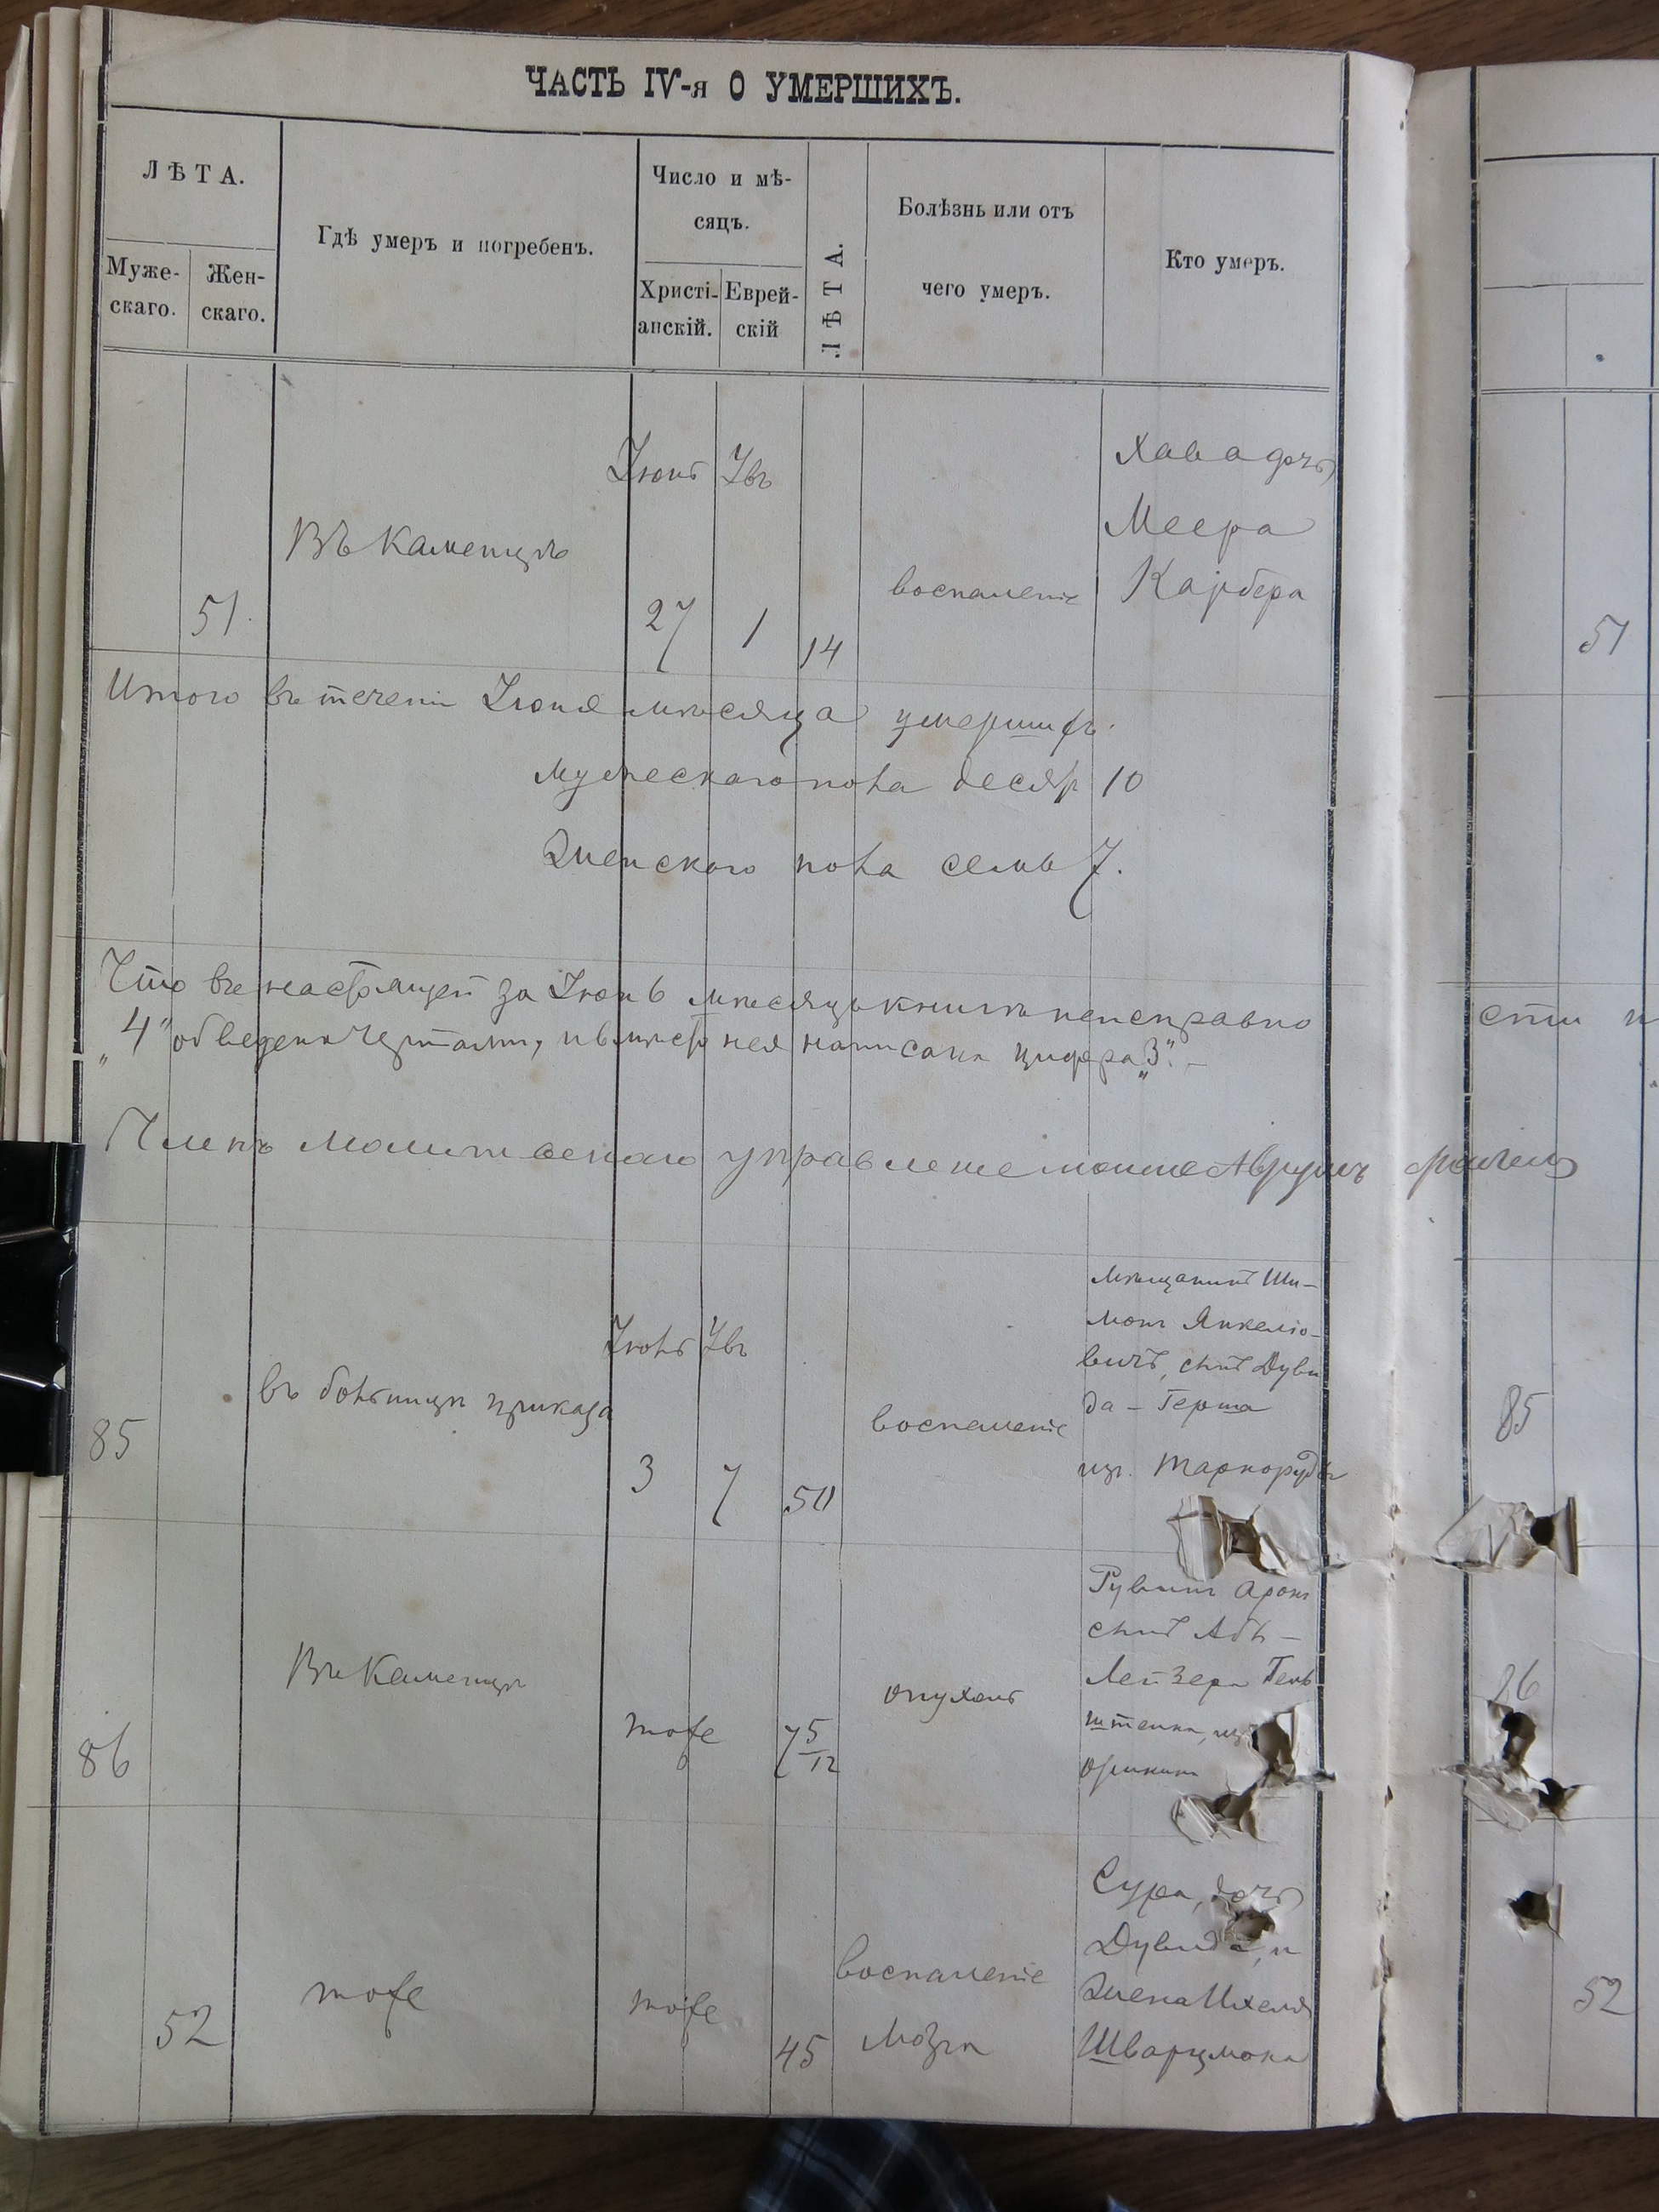 ЧАСТЬ IV-я О УМЕРШИХЪ.
ЛѢТА.
Муже-
скаго.
Жен-
скаго.
Гдѣ умеръ и погребенъ.
Число и мѣ-
сяцъ.
Христі-
анскій.
Еврей-
скій
ЛѢТА.
Болѣзнь или отъ
чего умеръ.
Кто умеръ.
51
Въ Каменцѣ
Іюнь
27
1
14
воспаленіе
Хава дочь
Меера
Итого въ теченіи Іюня мѣсяца умершихъ.
Мужескаго пола десять 10
Женскаго пола семь 7.
Что въ настоящей за Іюнь мѣсяцъ книгѣ неисправно
„4" обведена чертами, и вмѣсто нея написана цифра „3". —
Членъ молитвеннаго управленія
85
въ больницѣ приказа
Іюль
3
7
50
воспаленіе
мѣщанинъ Ши-
монъ Янкелю-
вичъ, сынъ Дуви
да - Герша
изъ Тарноруды
86
Въ Каменцѣ
тоже
7 5/12
опухоль
Рувинъ Аронъ
сынъ Абъ-
Лейзера
штейна, изъ
52
тоже
тоже
45
воспаленіе
мозга
Сура, дочь
Дувида, и
жена Ихеля
Шварцмана
51
85
86
52